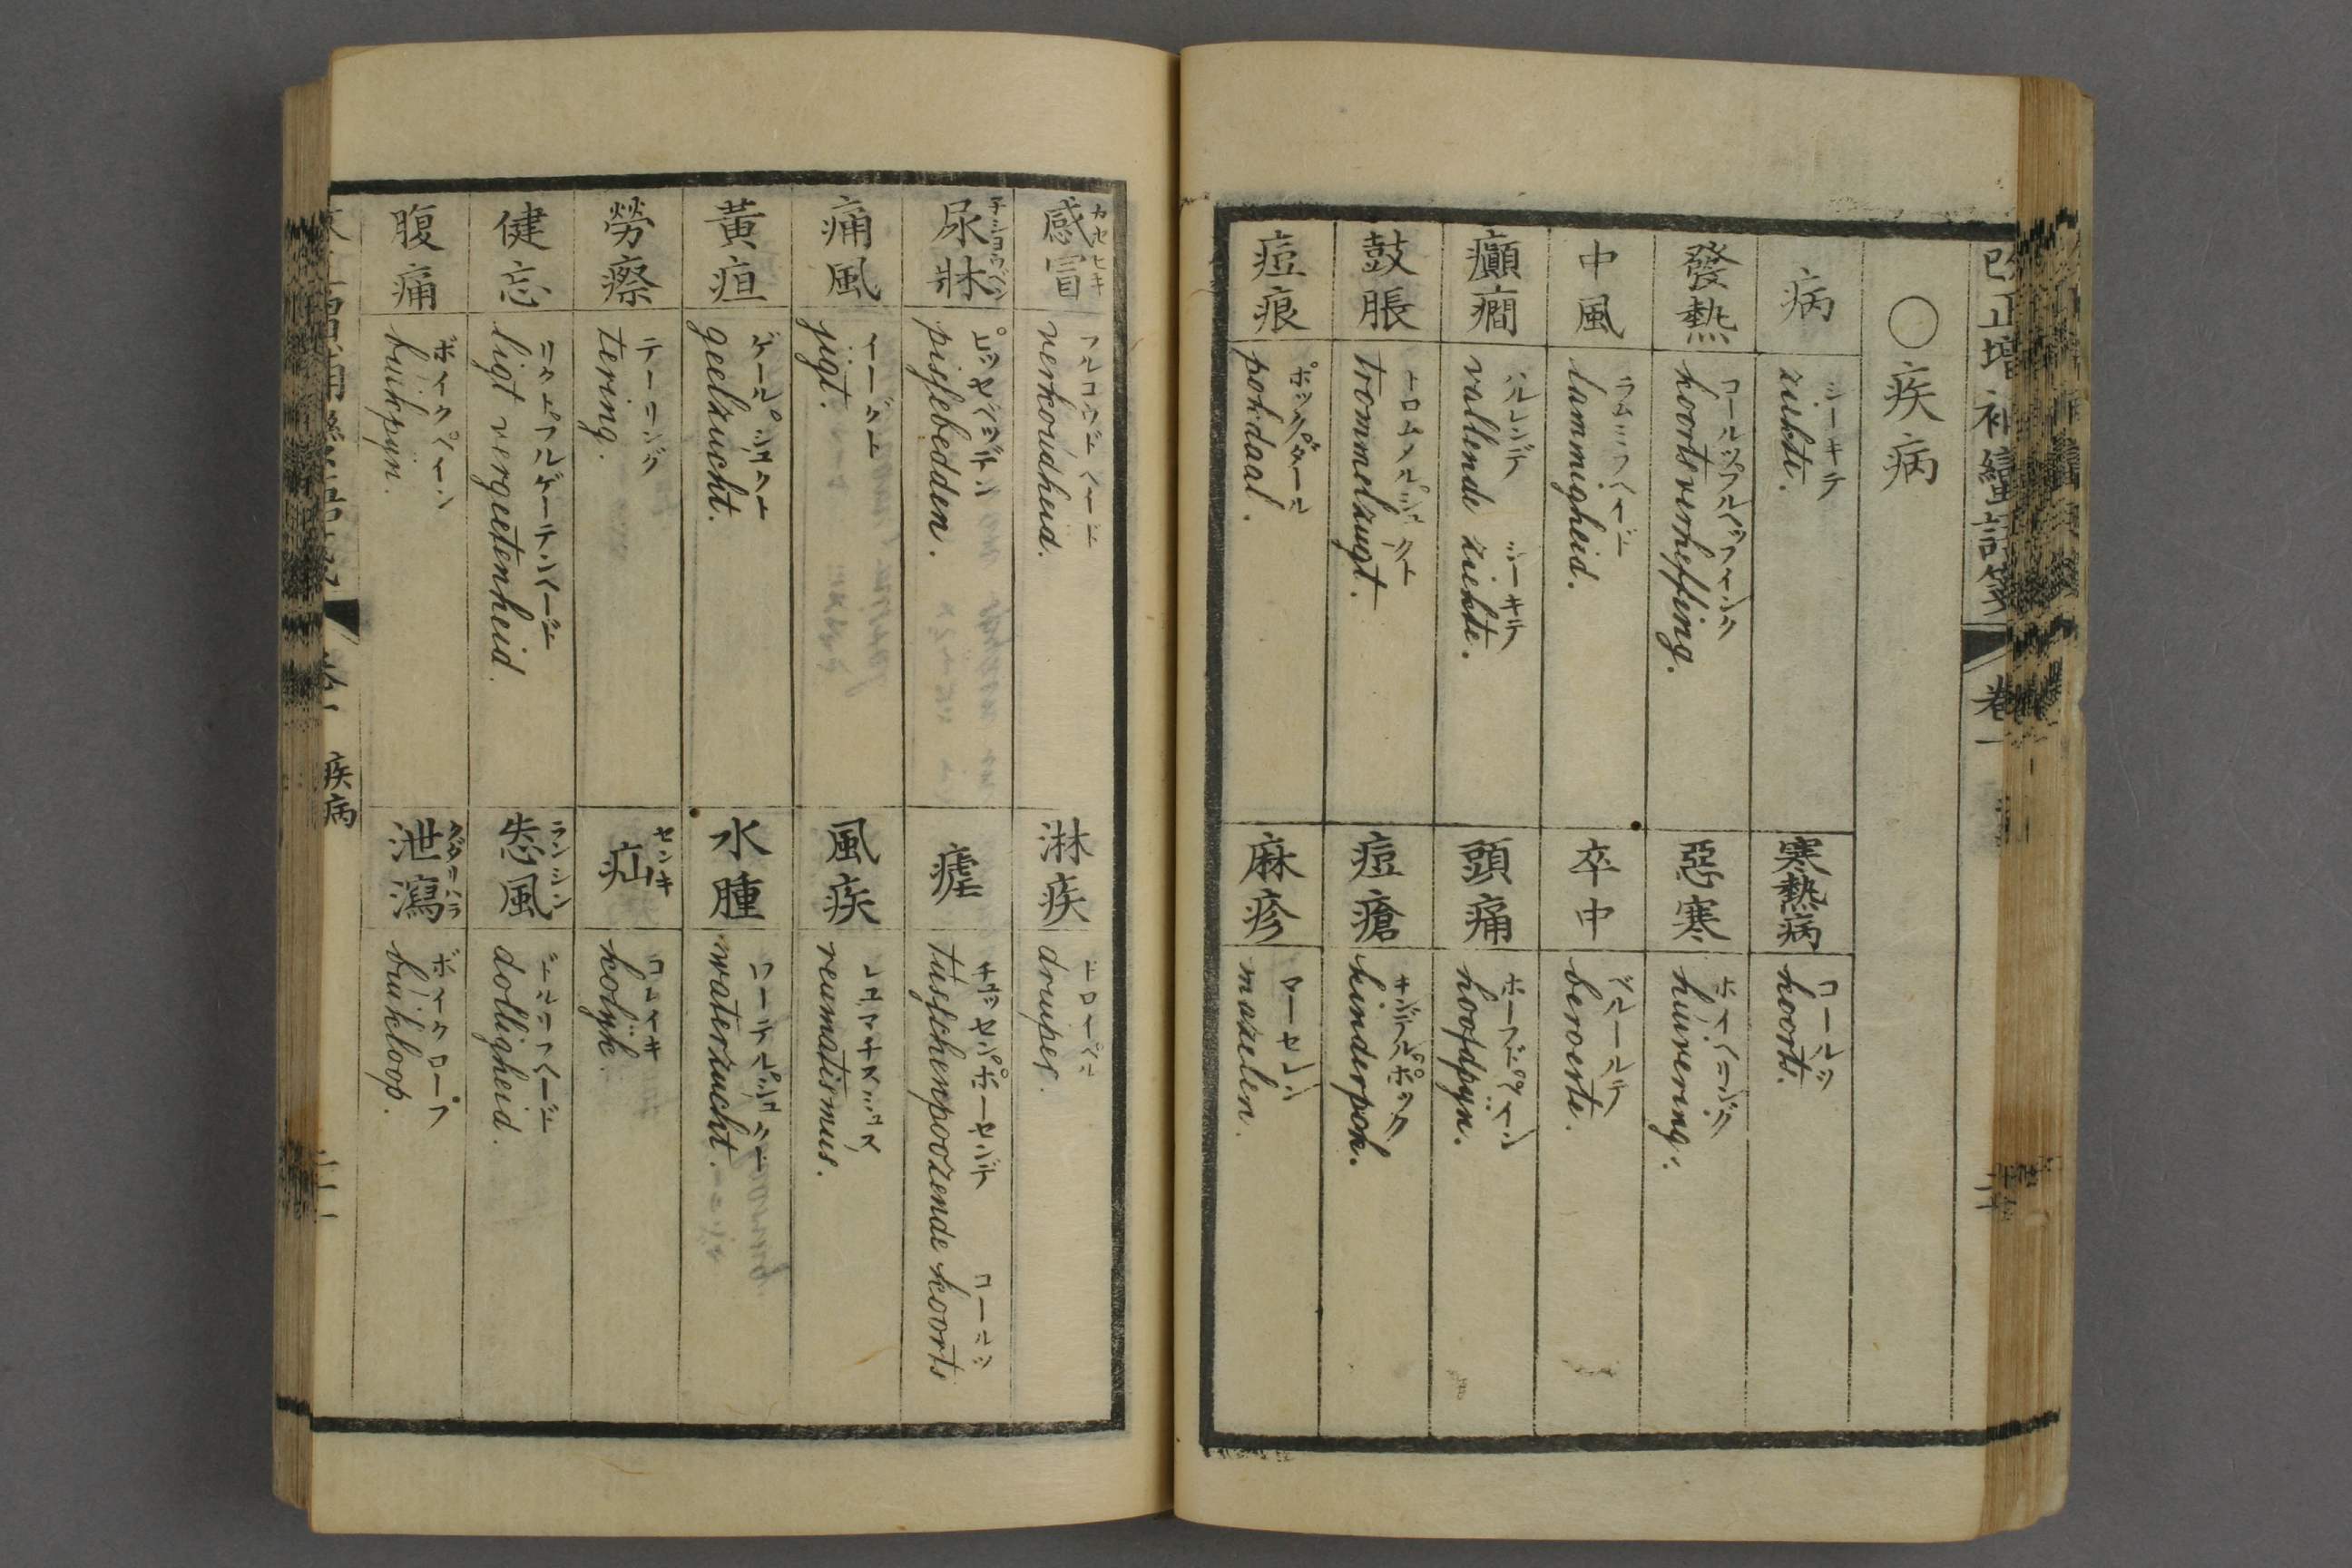 改正増補蠻語箋
卷一
○疾病
病
シーキテ
ziekte.
寒熱病
コールツ
koorts.
發熱
コールツフルヘッフィンク
koortsverheffing.
惡寒
ホイヘリング
huivering.
中風
ラムミフヘイド
lammigheid.
卒中
ベルールテ
beroerte.
癲癇
ハルレンデ シーキテ
vallende ziekte.
頭痛
ホーフドペイン
hoofdpijn.
鼓脹
トロムメルシュクト
trommelzugt.
痘瘡
キンデルポック
kinderpok.
痘痕
ポックダール
pokdaal.
麻疹
マーセレン
mazelen.
感冒
カセヒキ
verkoudheid.
淋疾
ドロイペル
druiper.
尿牀
子ショウベン
ピッセベッデン
pisfebedden.
瘧
チュッセンポーセンデ コールツ
tusfchenpoozende koorts
痛風
イーグト
jigt.
風疾
レユマチスミュス
reumatismus.
黃疸
ゲールシュクト
geelzucht.
水腫
ワーテルシュクト
waterzucht.
勞瘵
テーリング
tering.
疝
センキ
コレイキ
kolijk.
健忘
リクトフルゲーテンヘード
ligt vergeetenheid.
恷風
ランシン
ドルリフヘード
dolligheid.
腹痛
ボイクペイン
buikpijn.
泄瀉
クダリハラ
ボイクロープ
buikloop.
疾病